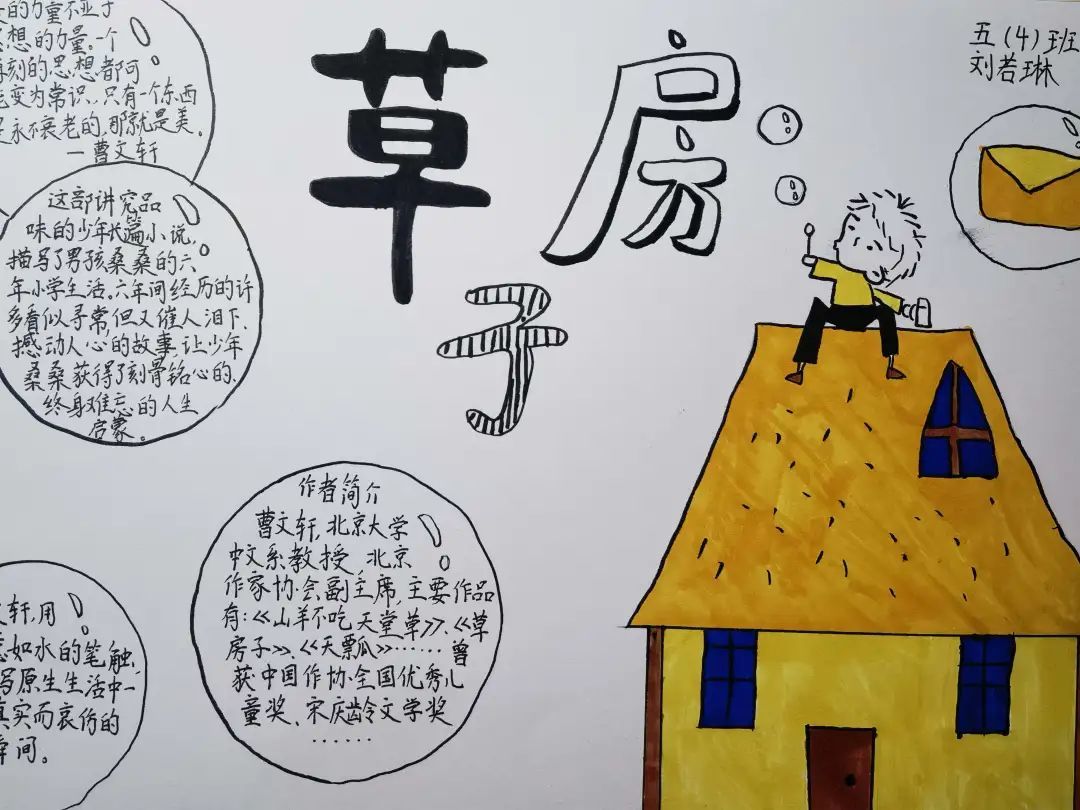 草房子
五(4)班
刘若琳
的力量不亚于
想的力量。一个
刻的思想都可
变为常识,只有一个东西
是永不衰老的,那就是美。
—曹文轩
这部讲究品
味的少年长篇小说,
描写了男孩桑桑的六
年小学生活。六年间经历的许
多看似寻常,但又催人泪下、
撼动人心的故事,让少年
桑桑获得了刻骨铭心的、
终身难忘的人生
启蒙。
作者简介
曹文轩,北京大学
中文系教授,北京
作家协会副主席,主要作品
有:《山羊不吃天堂草》、《草
房子》、《天瓢》……曾
获中国作协全国优秀儿
童奖、宋庆龄文学奖
……
文轩,用
如水的笔触,
写原生生活中一
真实而哀伤的
瞬间。